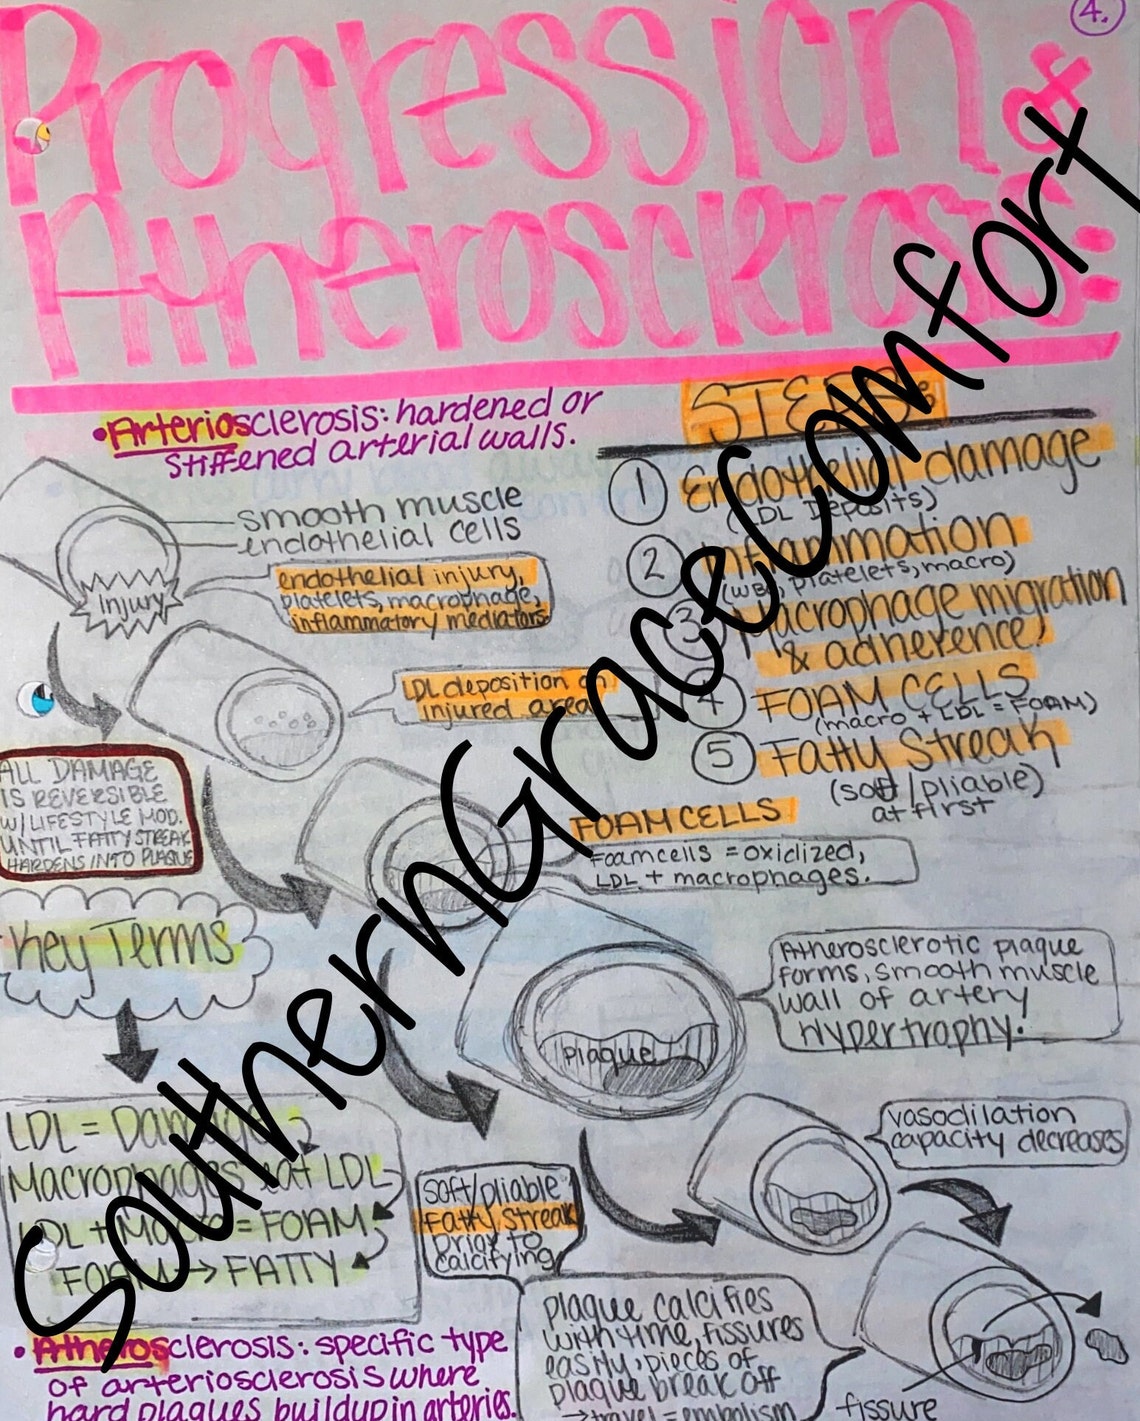 4.
Progression of
Atherosclerosis:
•Arteriosclerosis: hardened or
stiffened arterial walls.
smooth muscle
endothelial cells
Injury
endothelial injury,
platelets, macrophage,
inflammatory mediators
LDL deposition on
injured area
STEPS:
1 Endothelial damage
(LDL Deposits)
2 Inflammation
(WBC, platelets, macro)
3 Macrophage migration
& adherence
4 FOAM CELLS
(macro + LDL = FOAM)
5 Fatty Streak
(soft/pliable)
at first
ALL DAMAGE
IS REVERSIBLE
W/LIFESTYLE MOD.
UNTIL FATTY STREAK
HARDENS INTO PLAQUE
FOAM CELLS
Foamcells = oxidized,
LDL + macrophages.
Key Terms
LDL = Damage
Macrophages eat LDL
LDL + Macro = FOAM
FOAM → FATTY
Plaque
Atherosclerotic plaque
forms, smooth muscle
wall of artery
Hypertrophy!
vasodilation
capacity decreases
soft/pliable
Fatty Streak
prior to
calcifying
plaque calcifies
with time, fissures
easily, pieces of
plaque break off
→travel = embolism
fissure
• Atherosclerosis: specific type
of arteriosclerosis where
hard plaques buildup in arteries.
SouthernGraceComfort